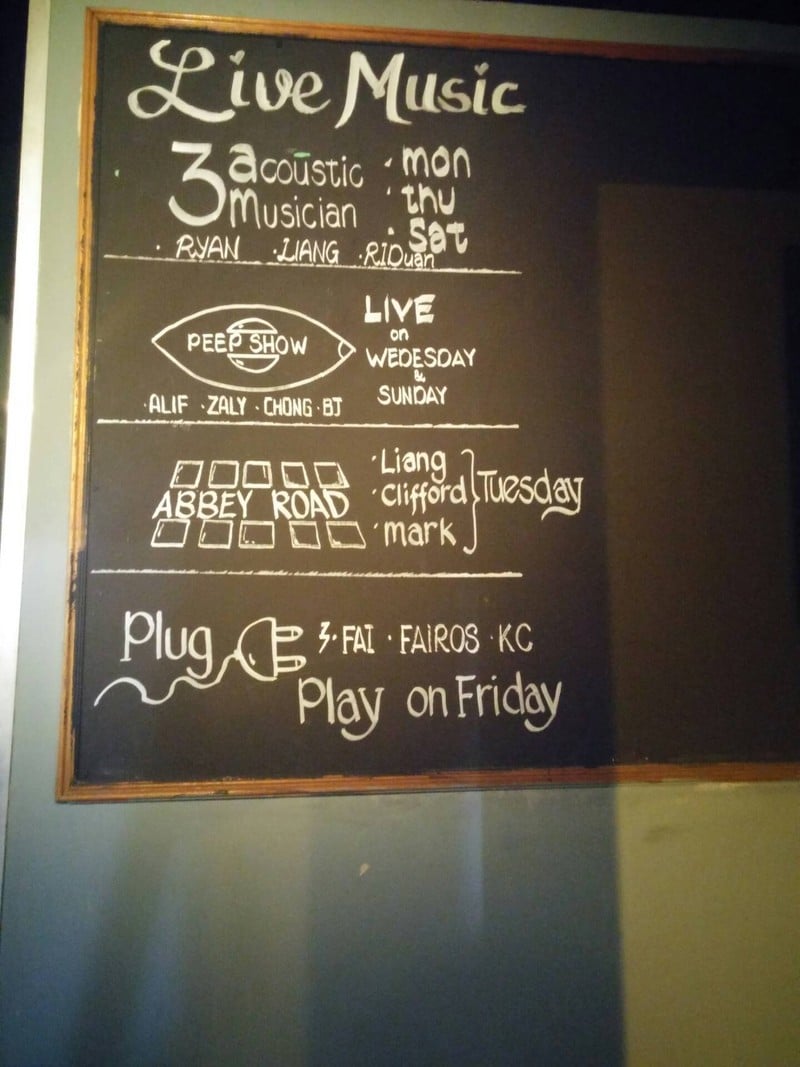 Live Music
3 acoustic musician
· mon
· thu
· Sat
· RYAN · LIANG · RIDuan
PEEP SHOW
LIVE
on
WEDESDAY
&
SUNDAY
· ALIF · ZALY · CHONG · BJ
ABBEY ROAD
· Liang
· Clifford
· mark
Tuesday
Plug
· FAI · FAIROS · KC
Play on Friday